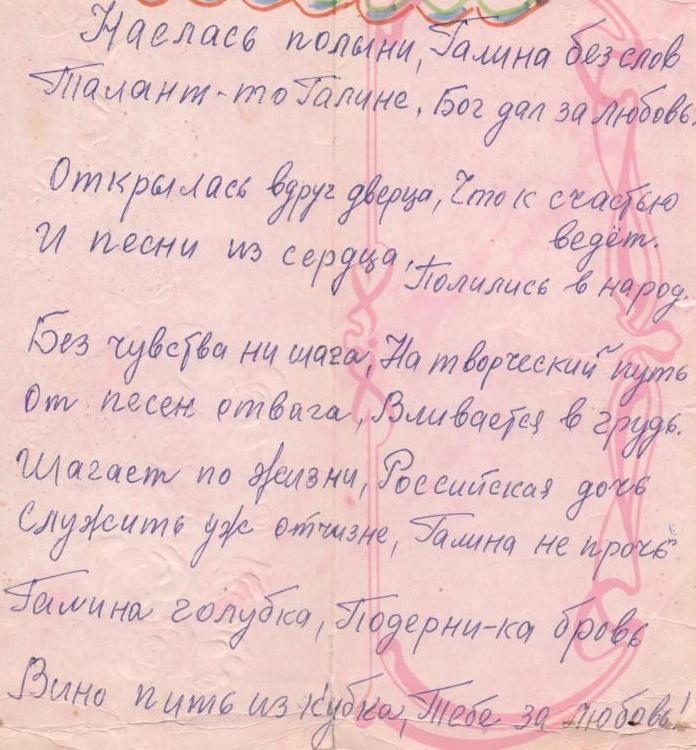 Наелась полыни, Галина без слов
Талант-то Галине, Бог дал за любовь.
Открылась вдруг дверца, Что к счастью
ведёт.
И песни из сердца, Полились в народ.
Без чувства ни шага, На творческий путь
От песен отвага, Вливается в грудь.
Шагает по жизни, Российская дочь
Служить уж отчизне, Галина не прочь.
Галина голубка, Подерни-ка бровь
Вино пить из кубка, Тебе за любовь!